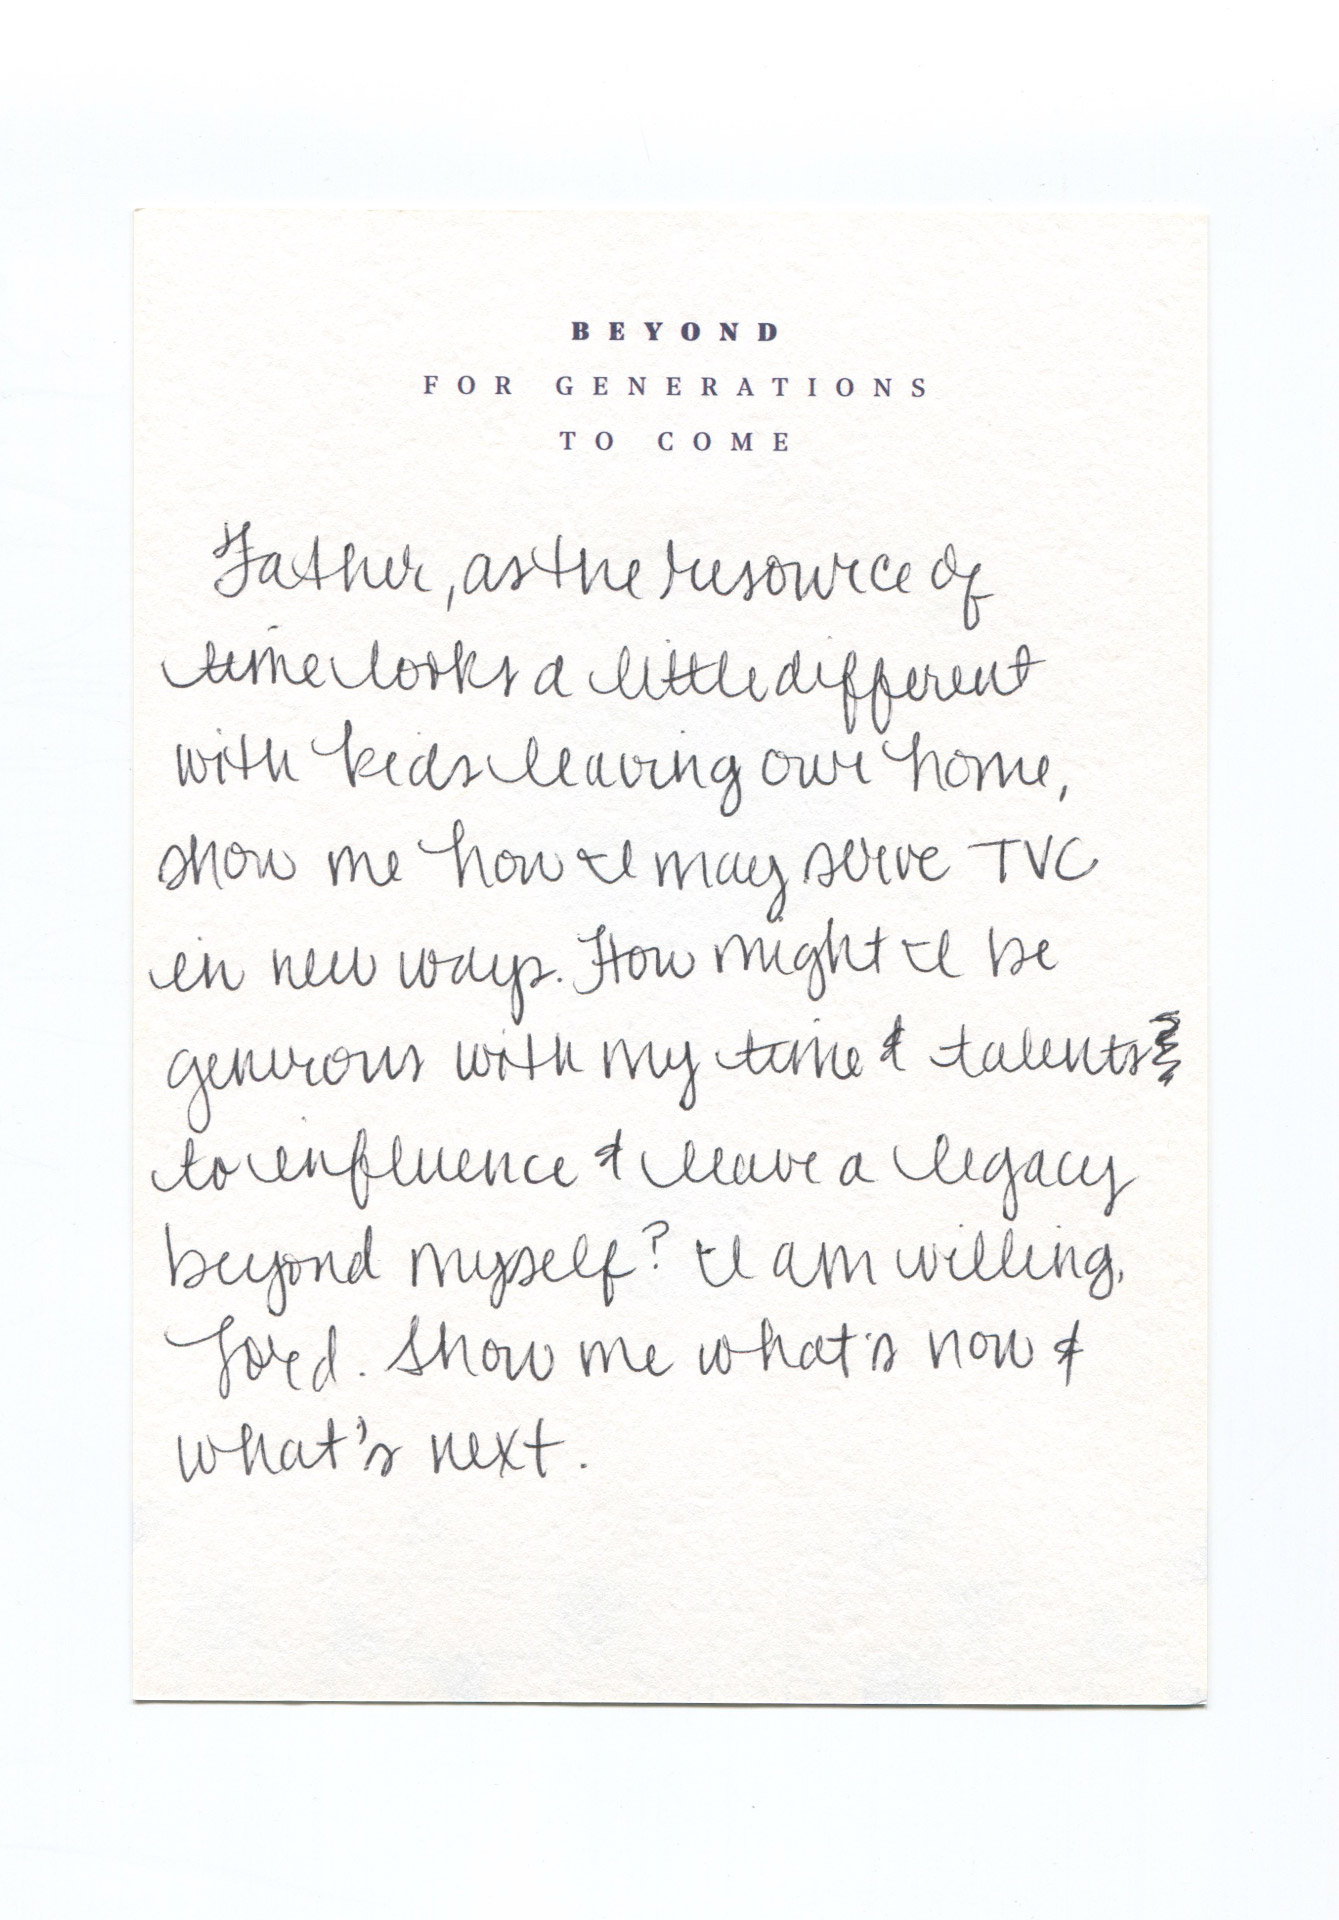 BEYOND
FOR GENERATIONS
TO COME
Father, as the resource of
time looks a little different
with kids leaving our home,
show me how I may serve TVC
in new ways. How might I be
generous with my time & talents
to influence & leave a legacy
beyond myself? I am willing,
Lord. Show me what's now &
what's next.